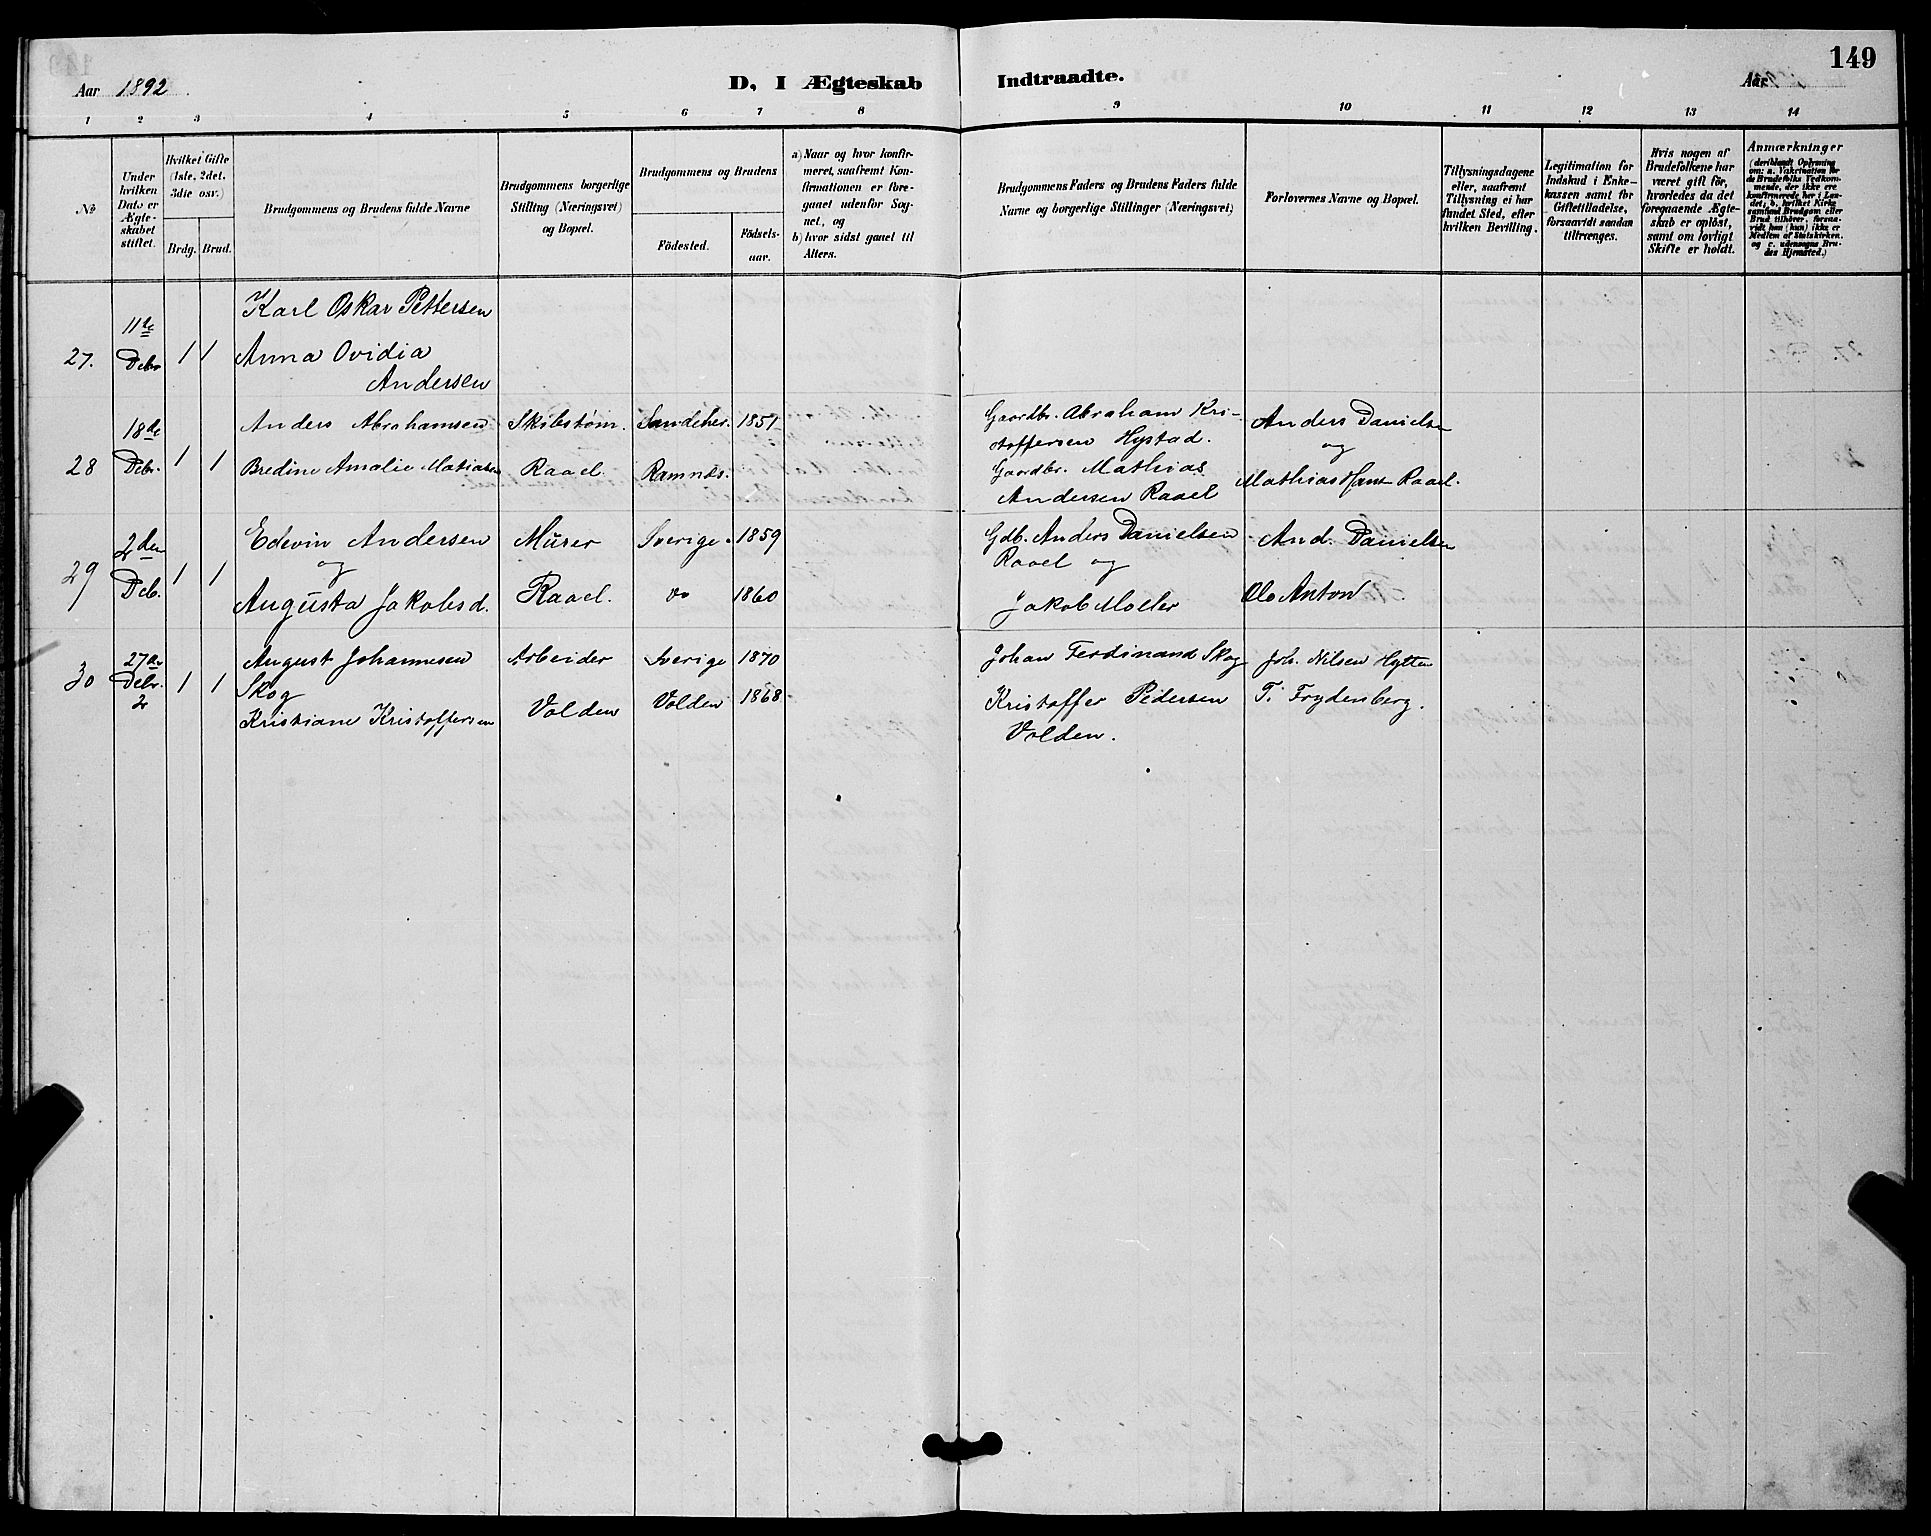 149
Aar 1892
D, I Ægteskab Indtraadte.
Aar
1 2 3 4 5 6 7 8 9 10 11 12 13 14
№
Under hvilken Dato er Ægteskabet stiftet.
Hvilket Gifte (1ste, 2det, 3die osv.)
Brdg. Brud.
Brudgommens og Brudens fulde Navne
Brudgommens borgerlige Stilling (Næringsvei) og Bopæl.
Brudgommens og Brudens
Födested. Födselsaar.
a) Naar og hvor konfirmeret, saafremt Konfirmationen er foregaaet udenfor Sognet, og
b) hvor sidst gaaet til Alters.
Brudgommens Faders og Brudens Faders fulde Navne og borgerlige Stillinger (Næringsvei)
Forlovernes Navne og Bopæl.
Tillysningsdagene eller, saafremt Tillysning ei har fundet Sted, efter hvilken Bevilling.
Legitimation for Indskud i Enkekassen samt for Giftetilladelse, forsaavidt saadan tiltrænges.
Hvis nogen af Brudefolkene har været gift för, hvorledes da det foregaaende Ægteskab er oplöst, samt om lovligt Skifte er holdt.
Anmærkninger (deriblandt Oplysning om: a. Vakcination for de Brudefolks Vedkommende, der ikke ere konfirmerede her i Landet; b. hvilket Kirkesamfund Brudgom eller Brud tilhörer, forsaavidt han (hun) ikke er Medlem af Statskirken, og c. udensogns Brudes Hjemsted.)
27. 11te Debr 1 1
Karl Oskar Pettersen
Anna Ovidia
Andersen
28 18de Debr. 1 1
Anders Abrahamsen Skibstøm. Sandeher. 1851
Bredine Amalie Matiasen Raael. Ramnæs.
Gaardbr. Abraham Kri-
stoffersen Hystad.
Gaardbr. Mathias
Andersen Raael
Anders Danielsen
og
Mathias Hans Raael.
29 2den Deb. 1 1
Edevin Andersen Murer Sverige. 1859
og
Augusta Jakobsd. Raael. do 1860
Gdb. Anders Danielsen
Raael og
Jakob Moller
And. Danielsen
Ole Anton
30 27de Debr. 2 1 1
August Johannesen Arbeider Sverige 1870
Skog
Kristiane Kristoffersen Volden Volden 1868
Johan Ferdinand Skog
Kristoffer Pedersen
Volden.
Joh. Nilsen Hytten
T. Frydenberg.